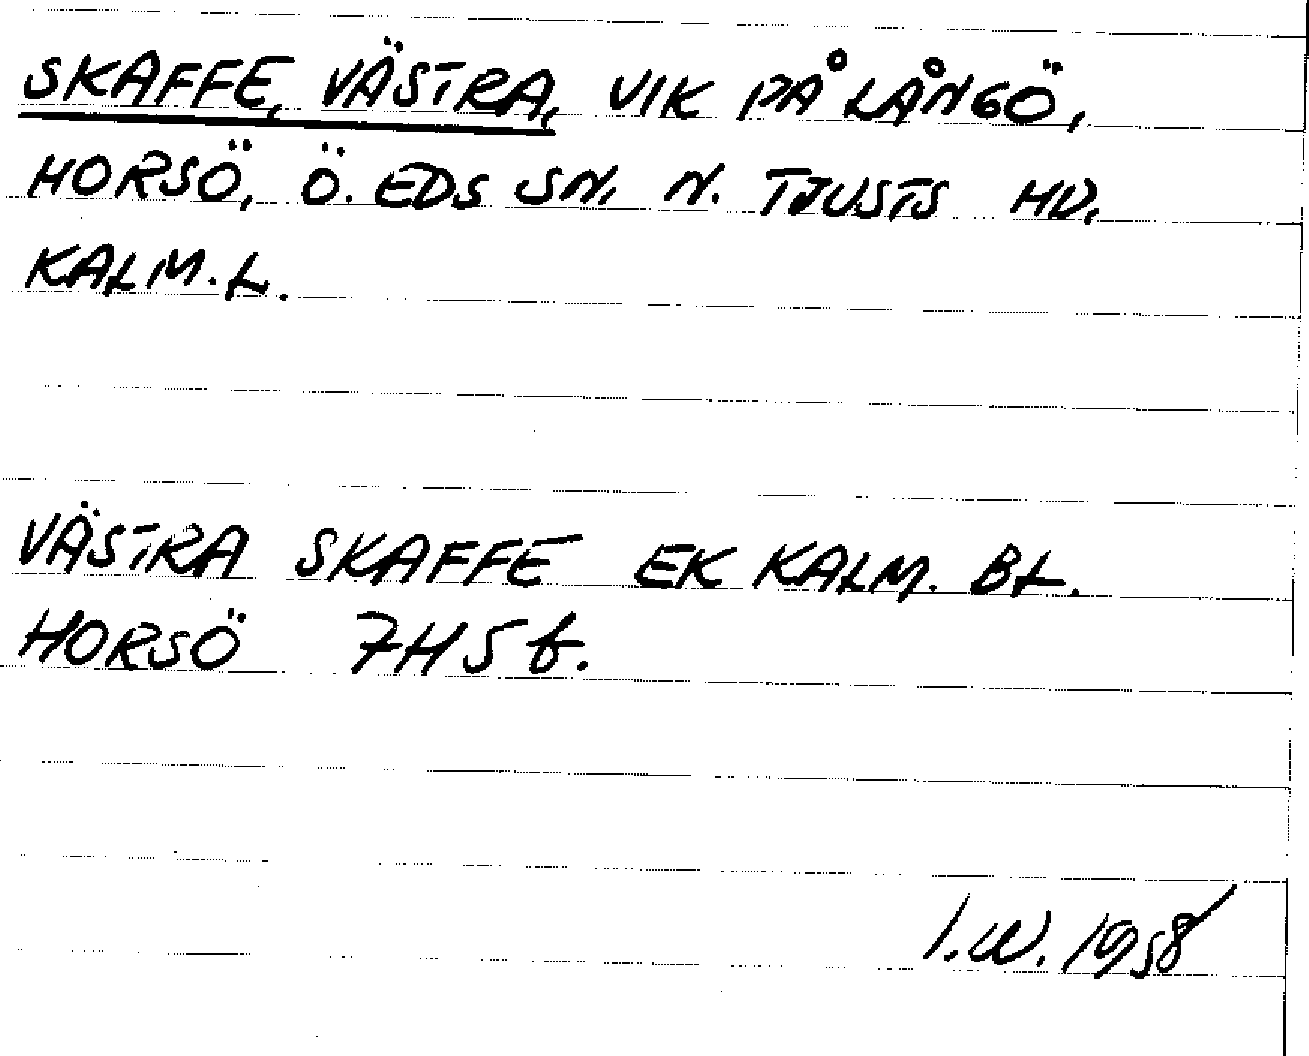 SKAFFE, VÄSTRA, VIK PÅ LÅNGÖ,
HORSÖ, Ö. EDS SN. N. TJUSTS HD.
KALM. L.
VÄSTRA SKAFFE EK KALM. BL.
HORSÖ 7H5f.
I.W. 1958